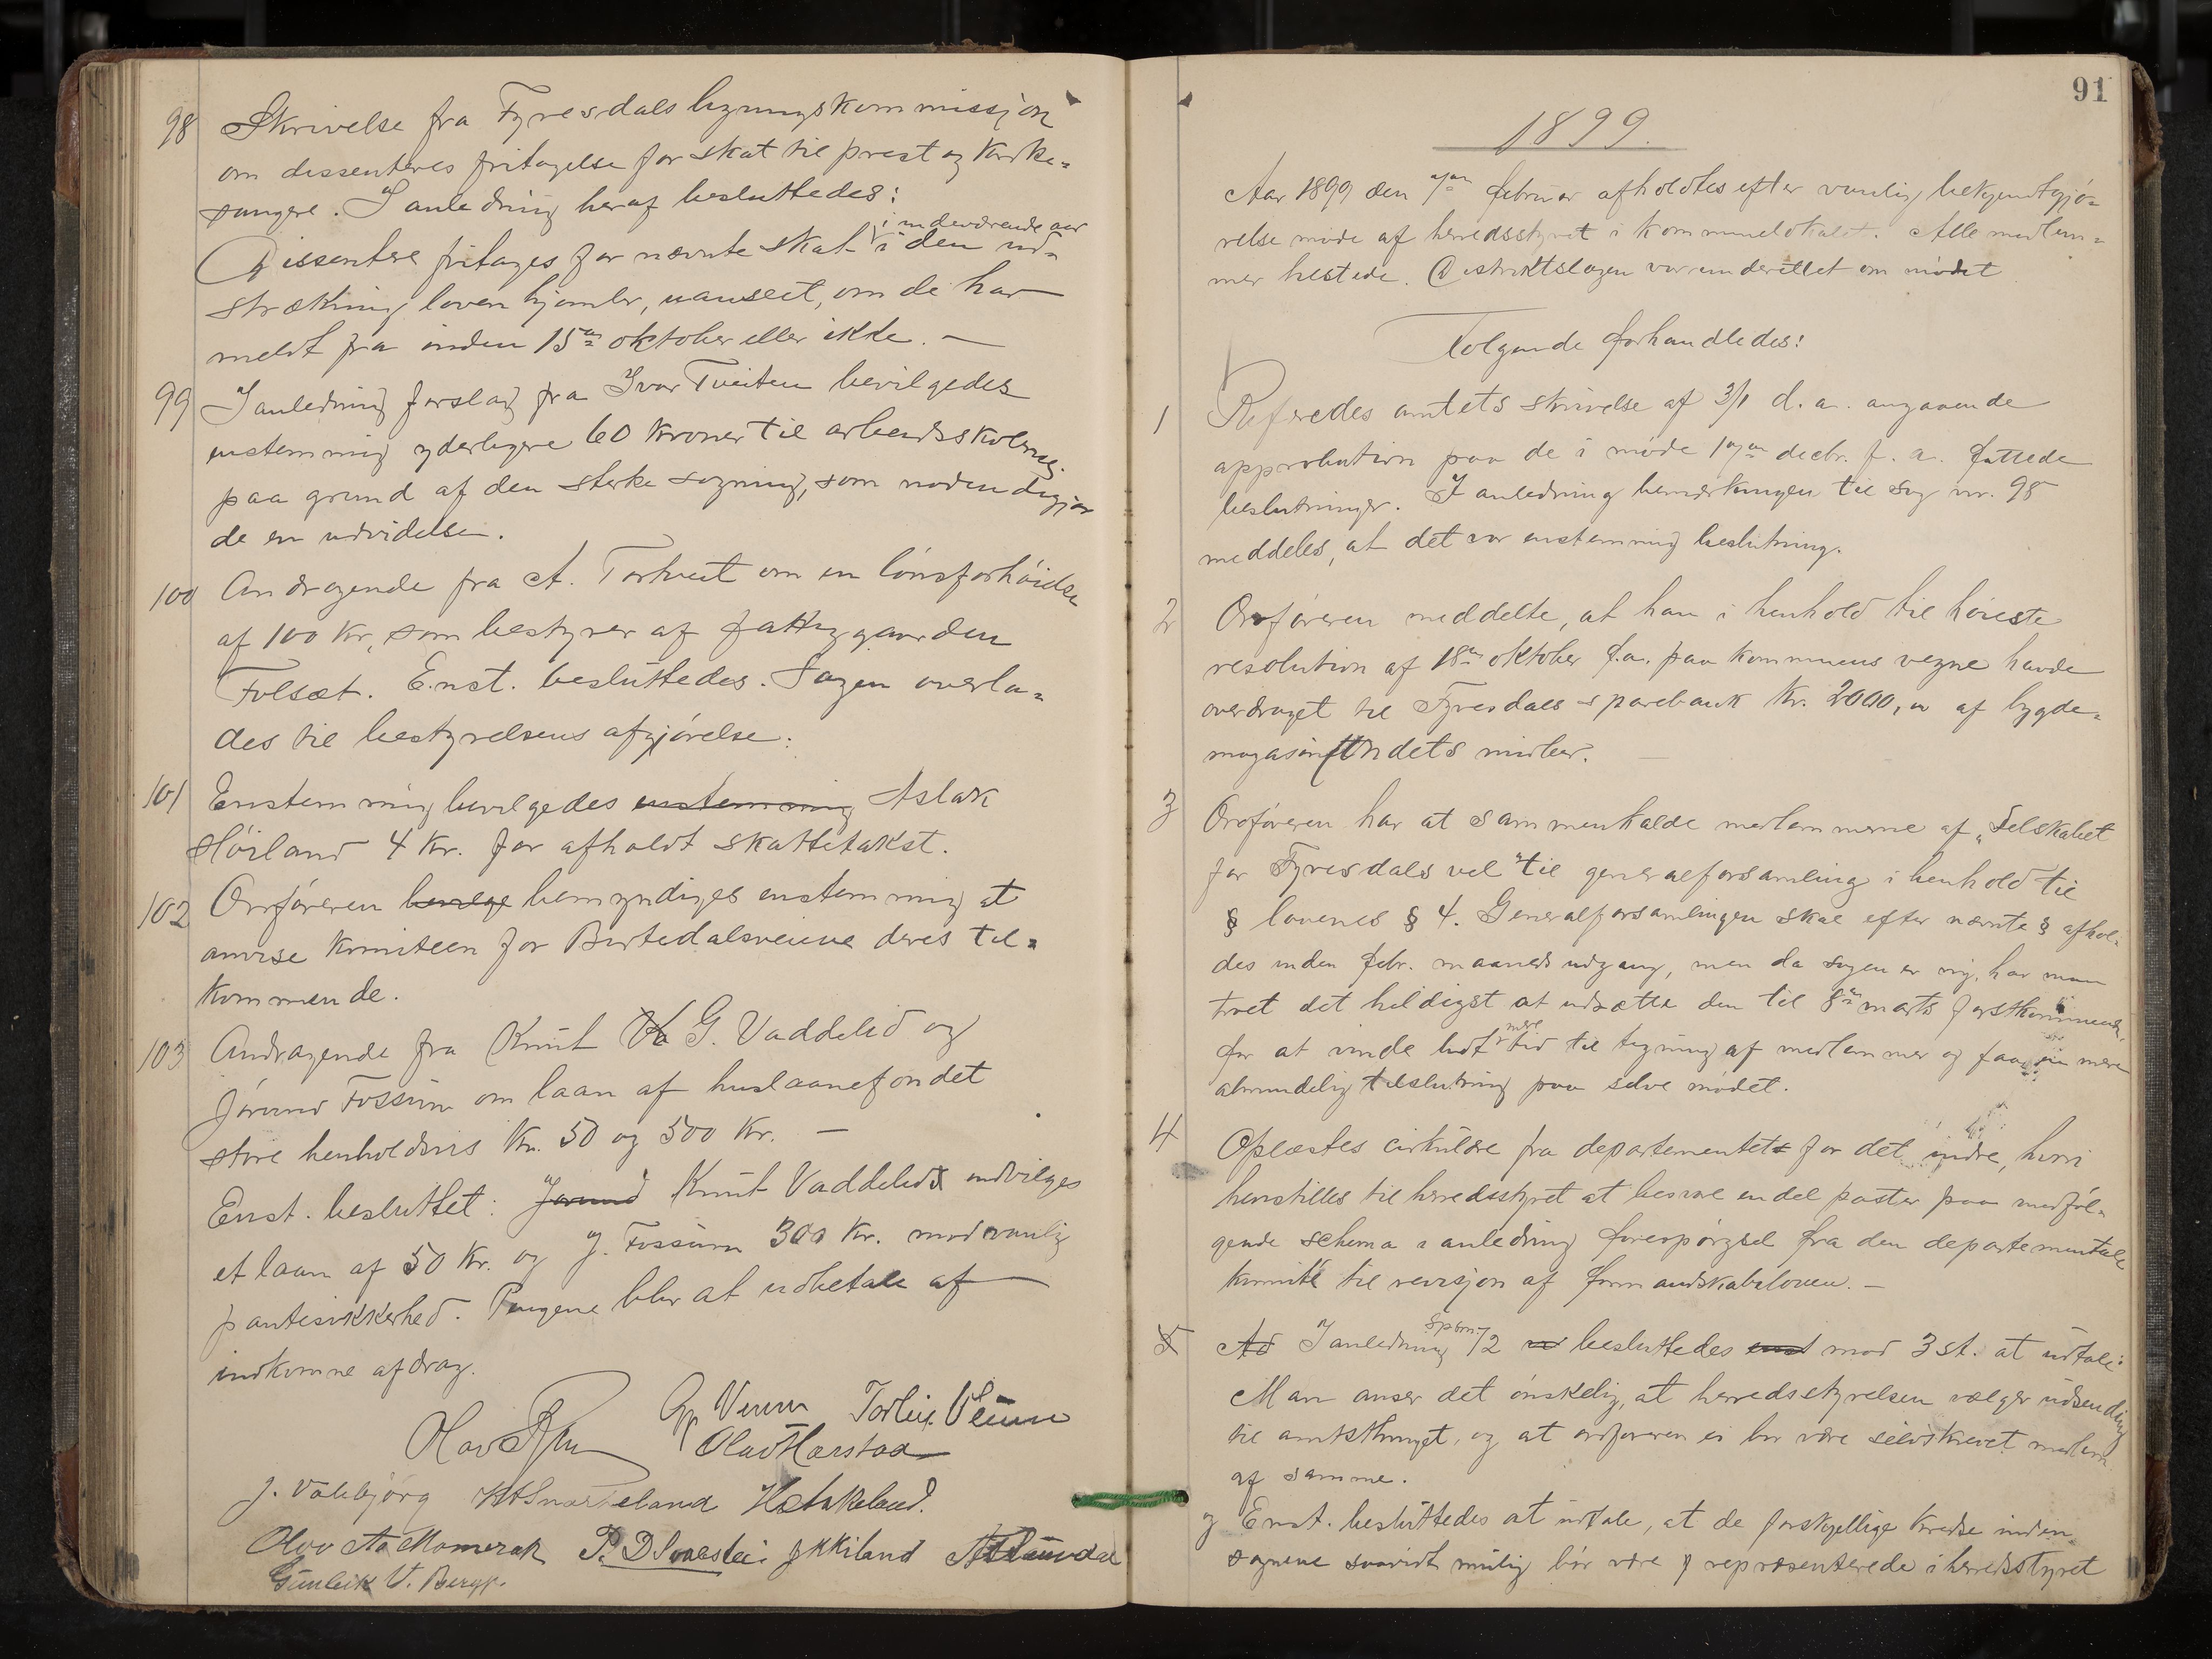 98 Skrivelse fra Fyresdals ligningskommissjon
om dissenteres fritagelse for skat til prest og kirke-
sangere. I anledning heraf besluttedes:
i indeværende aar
Dissentere fritages for nævnte skat i den ud-
strækning loven hjemler, uanseet, om de har
meldt fra inden 15de oktober eller ikke. —
99 I anledning forslag fra Ivar Tveiten bevilgedes
enstemmig yderligere 60 kroner til arbeidsskolerne
paa grund af den sterke søgning, som nødvendiggjor
de en udvidelse.
100 Andragende fra A. Tortveit om en lønsforhøidse
af 100 kr, som bestyrer af fattiggaarden
Folsæt. Enst. besluttedes. Sagen overla-
des til bestyrelsens afgjørelse.
101 Enstemmig bevilgedes enstemmig Aslak
Høiland 4 kr. for afholdt skattetakst.
102 Orføreren bevilge bemyndiges enstemmig at
anvise komiteen for Birtedalsveiene deres til-
kommende.
103 Andragende fra Knut G. Vaddelid og
Jørund Fossum om laan af huslaanefondet
store henholdsvis kr. 50 og 500 kr. —
Enst. besluttet: Jørund Knut Vaddelid indvilges
et laan af 50 kr. og J. Fossum 300 kr. mod vanlig
pantesikkerhed. Pengene blir at udbetale af
indkomne afdrag.
Torleiv Veum
Olav Harstad
J. Vaibjørg
Gunleik V. Berge.
91
1899.
Aar 1899 den februar afholdtes efter vanlig bekjendtgjø-
relse møde af herredsstyret i kommunelokalet. Alle medlem-
mer tilstede. Distriktslægen var underettet om mødet
Følgende forhandledes:
1 Referedes amtets skrivelse af 3/1 d. a. angaaende
approbation paa de i møde decbr. f. a. fattede
beslutninger. I anledning bemærkningen til sag nr. 95
meddeles, at det var enstemmig beslutning.
2 Orføreren meddelte, at han i henhold til høieste
resolution af 18de oktober f.a. paa kommunens vegne havde
overdraget til Fyresdals sparebank kr. 2000,00 af bygde-
magasinfondets midler.
3 Ordføreren har at sammenkalde medlemmerne af „Selskabet
for Fyresdals vel" til generalforsamling i henhold til
§ lovenes § 4. Generalforsamlingen skal efter nævnte § afhol-
des inden febr. maaneds udgang, men da sagen er ny, har man
troet det heldigst at udsætte den til 8de marts førstkommende,
for at vinde lidt mere tid til tegning af medlemmer og faa en mere
almindelig tilslutning paa selve mødet.
4 Oplæstes cirkulære fra departementet for det indre, hvori
henstilles til herredsstyret at besvare endel poster paa medføl-
gende schema i anledning forespørgsel fra den departementale
komite til revisjon af formandskabsloven. —
5 Ad I anledning spørsm. 1/2 besluttedes enst mod 3 st. at udtale:
Man anser det ønskelig, at herredsstyrelsen vælger udsending
til amtsthinget, og at ordføreren ei bør være selvskrevet medlem
af samme.
og Enst. besluttedes at udtale, at de forskjellige kredse inden
sognene saavidt mulig bør være repræsenterede i herredsstyret